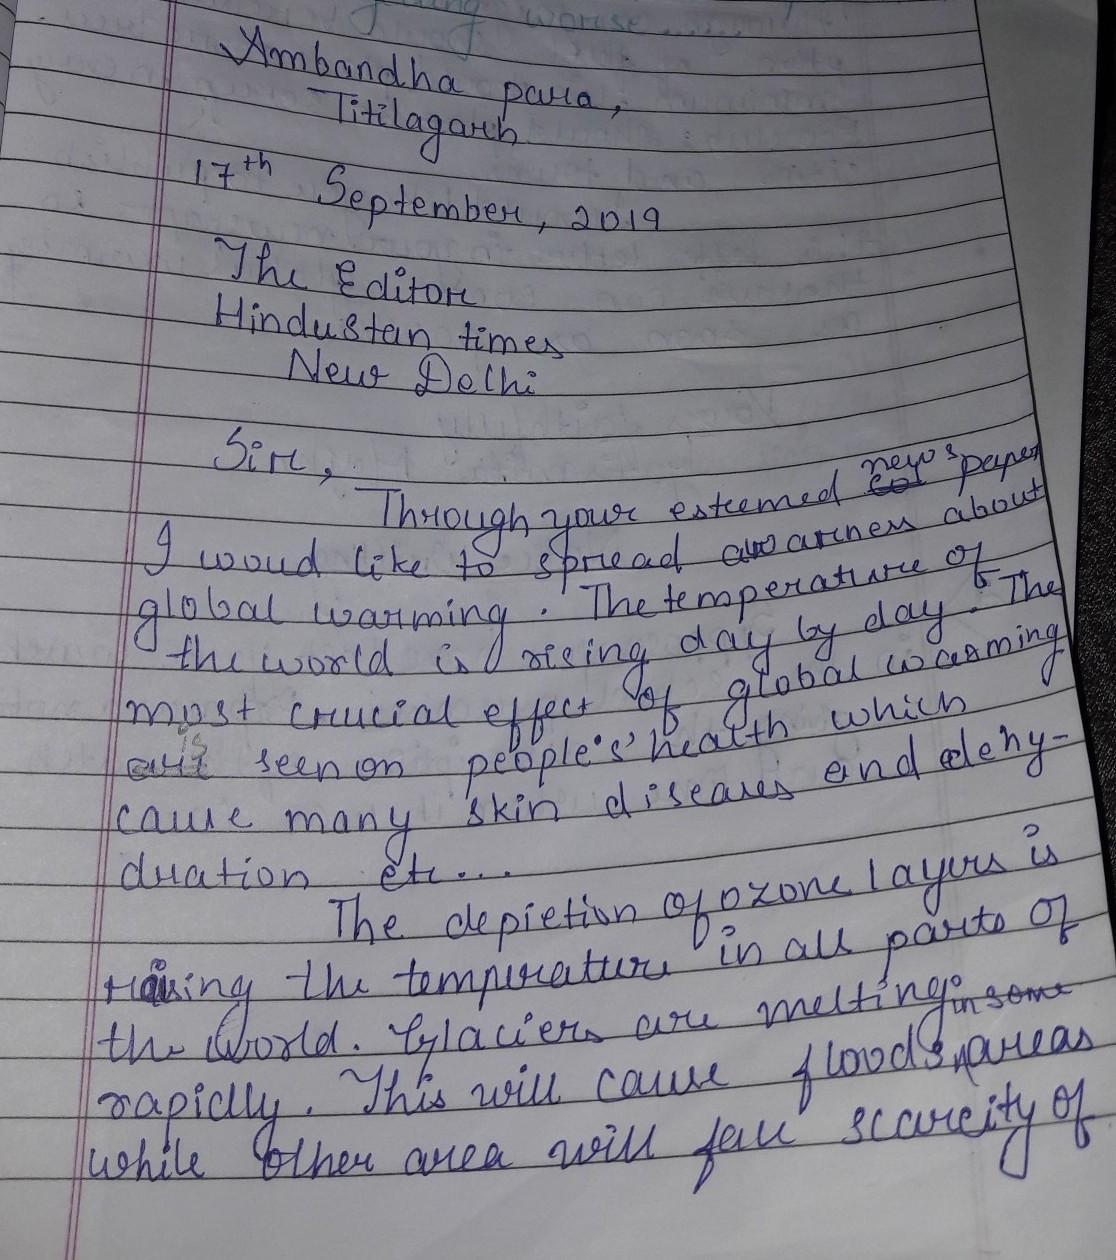 worse
Ambandha para,
Titilagarh
17th September, 2019
The Editor
Hindustan times
New Delhi
Sir,
Through your esteemed news paper
I woud like to spread awarness about
global warming. The temperature of
the world is rising day by day. The
most crucial effect of global warming
is seen on people's' health which
cause many skin diseases and dehy-
dration etc...
The depietion of ozone layers is
raising the temperature in all parts of
the World. Glaciers are melting
rapidly. This will cause floods in some areas
while other area will face scarcity of